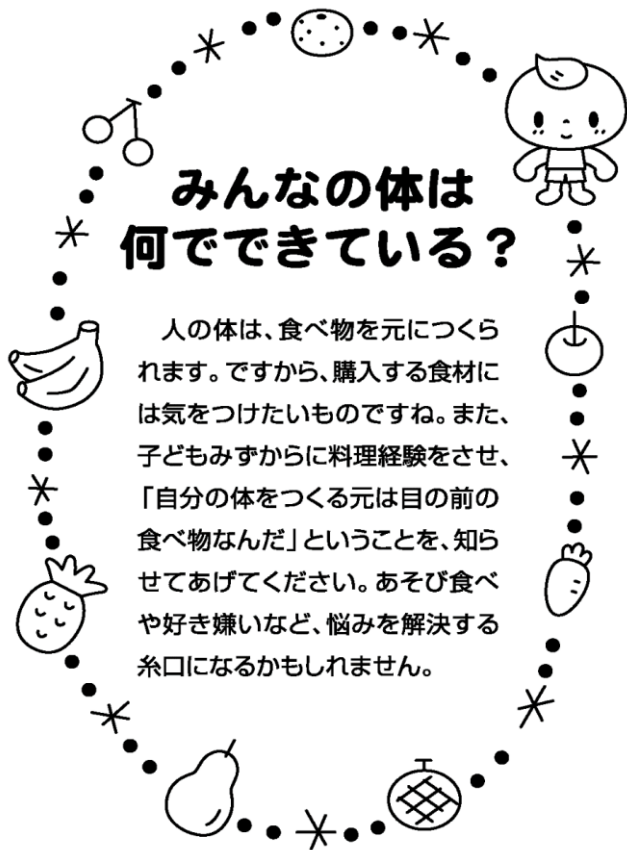 みんなの体は
何でできている？
人の体は、食べ物を元につくら
れます。ですから、購入する食材に
は気をつけたいものですね。また、
子どもみずからに料理経験をさせ、
「自分の体をつくる元は目の前の
食べ物なんだ」ということを、知ら
せてあげてください。あそび食べ
や好き嫌いなど、悩みを解決する
糸口になるかもしれません。